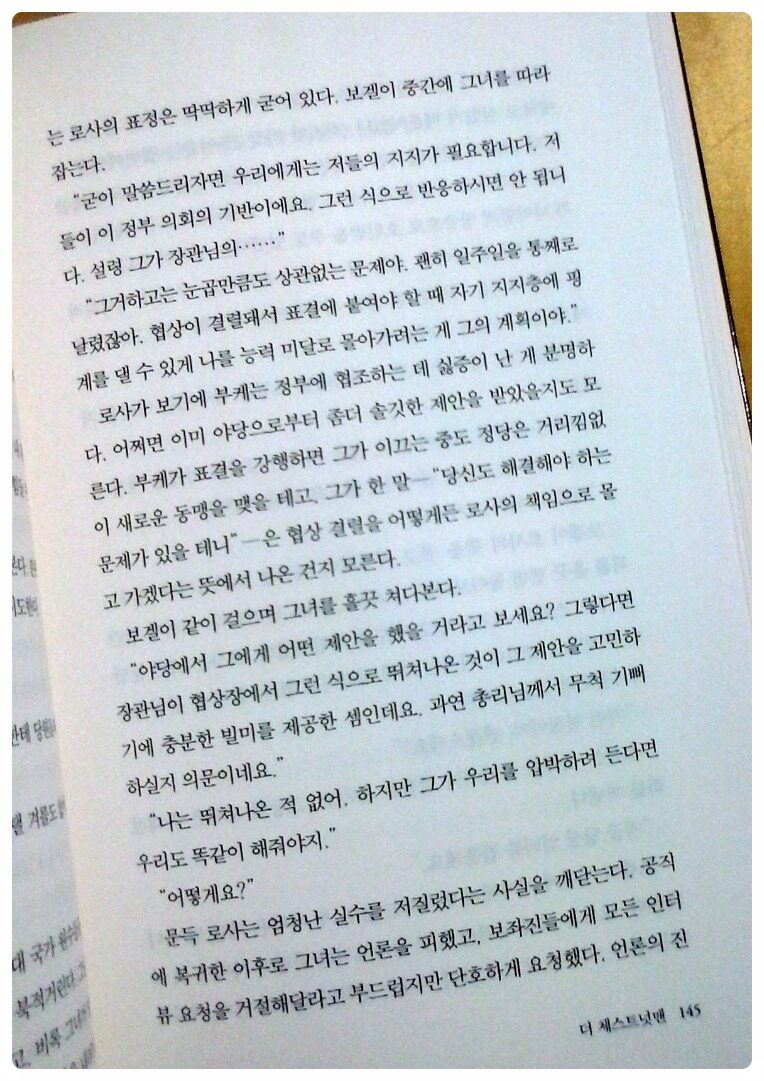 는 로사의 표정은 딱딱하게 굳어 있다. 보겔이 중간에 그녀를 따라
잡는다.
“굳이 말씀드리자면 우리에게는 저들의 지지가 필요합니다. 저
들이 이 정부 의회의 기반이에요. 그런 식으로 반응하시면 안 됩니
다. 설령 그가 장관님의……”
“그거하고는 눈곱만큼도 상관없는 문제야. 괜히 일주일을 통째로
날렸잖아. 협상이 결렬돼서 표결에 붙여야 할 때 자기 지지층에 핑
계를 댈 수 있게 나를 능력 미달로 몰아가려는 게 그의 계획이야.”
로사가 보기에 부케는 정부에 협조하는 데 싫증이 난 게 분명하
다. 어쩌면 이미 야당으로부터 좀더 솔깃한 제안을 받았을지도 모
른다. 부케가 표결을 강행하면 그가 이끄는 중도 정당은 거리낌없
이 새로운 동맹을 맺을 테고, 그가 한 말—“당신도 해결해야 하는
문제가 있을 테니”—은 협상 결렬을 어떻게든 로사의 책임으로 몰
고 가겠다는 뜻에서 나온 건지 모른다.
보겔이 같이 걸으며 그녀를 흘끗 쳐다본다.
“야당에서 그에게 어떤 제안을 했을 거라고 보세요? 그렇다면
장관님이 협상장에서 그런 식으로 뛰쳐나온 것이 그 제안을 고민하
기에 충분한 빌미를 제공한 셈인데요. 과연 총리님께서 무척 기뻐
하실지 의문이네요.”
“나는 뛰쳐나온 적 없어. 하지만 그가 우리를 압박하려 든다면
우리도 똑같이 해줘야지.”
“어떻게요?”
문득 로사는 엄청난 실수를 저질렀다는 사실을 깨닫는다. 공직
에 복귀한 이후로 그녀는 언론을 피했고, 보좌진들에게 모든 인터
뷰 요청을 거절해달라고 부드럽지만 단호하게 요청했다. 언론의 진
더 체스트넛맨 145